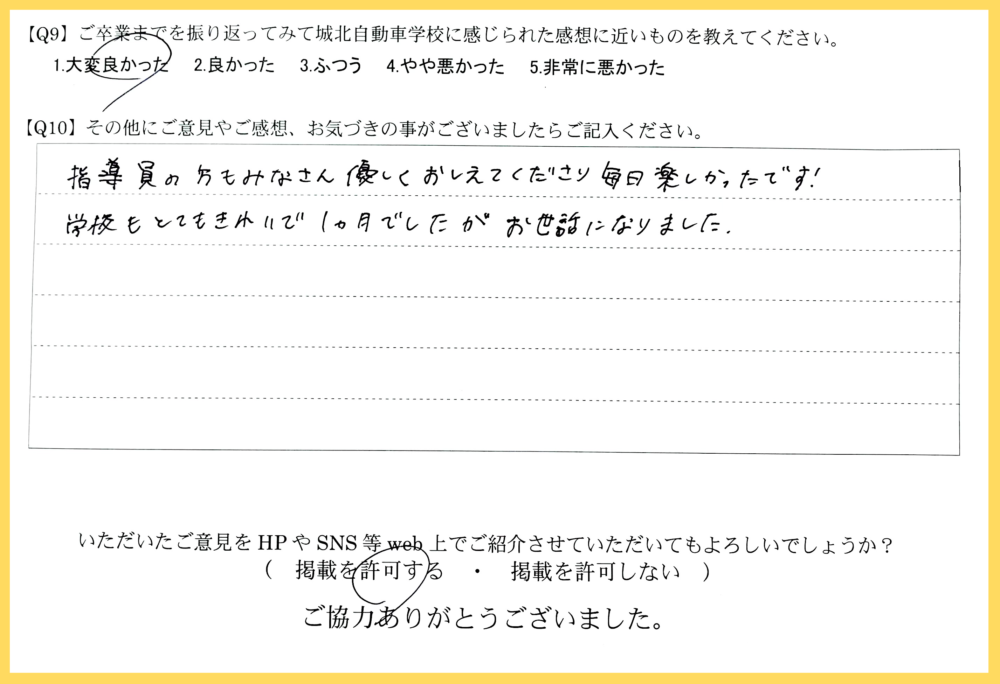 【Q9】ご卒業までを振り返ってみて城北自動車学校に感じられた感想に近いものを教えてください。
1.大変良かった 2.良かった 3.ふつう 4.やや悪かった 5.非常に悪かった
【Q10】その他にご意見やご感想、お気づきの事がございましたらご記入ください。
指導員の方もみなさん優しくおしえてくださり毎日楽しかったです!
学校もとてもきれいで1ヵ月でしたがお世話になりました.
いただいたご意見をHPやSNS等web上でご紹介させていただいてもよろしいでしょうか？
（ 掲載を許可する ・ 掲載を許可しない ）
ご協力ありがとうございました。